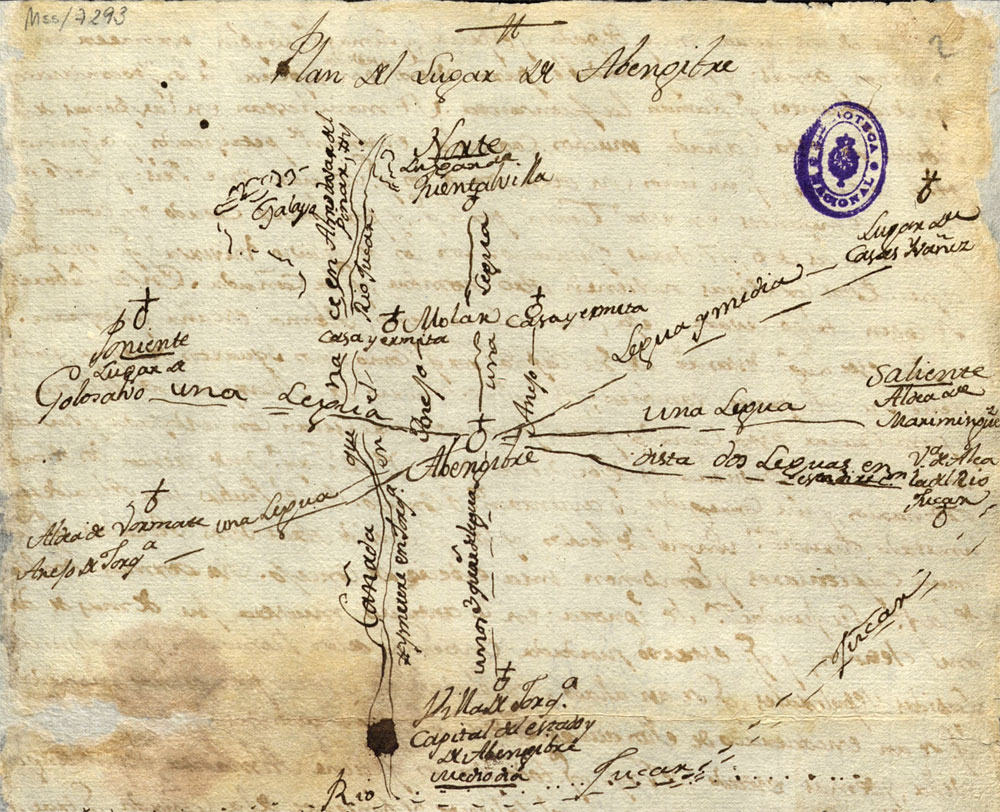 Mss/7293
2
Plan del Lugar de Abengibre
Norte
Lugar de
Fuentalvilla
BIBLIOTECA
NACIONAL
Atalaya
Cañada que nace en Almodovar del
Pinar, y
Rio Jucar
una Legua
Lugar de
Casas Ybañez
Legua y media
Casa y ermita
Molar
Casa y ermita
Poniente
Lugar de
Golosalvo
una Legua
Anejo
una
Anejo
una Legua
Saliente
Aldea de
Mariminguez
Abengibre
dista dos Leguas en
V.ª de Alca
la del Rio
Jucar
Aldea de Vormate
Anejo de Jorq.ª
una Legua
y muere en Jorq.ª
unos 3 quar. de legua
Villa de Jorq.ª
Capital del estado y
de Abengibre
Mediodia
Rio
Jucar
Jucar